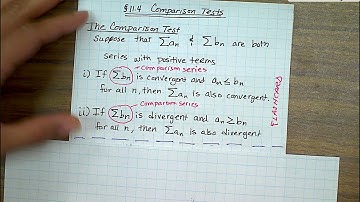 §11.4 Comparison Tests
The Comparison Test
Suppose that Σan & Σbn are both
series with positive terms
Comparison series
i) If Σbn is convergent and an ≤ bn
for all n, then Σan is also convergent.
Comparison series
ii) If Σbn is divergent and an ≥ bn
for all n, then Σan is also divergent
FLASHCARDS